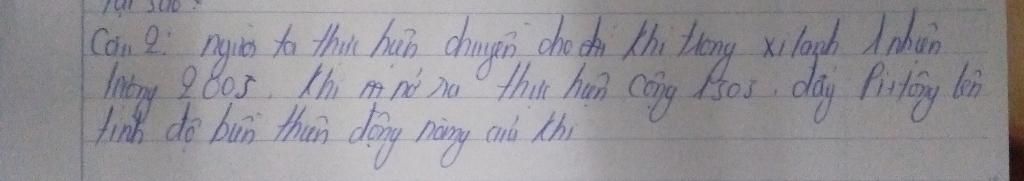 Tại sao?
Câu 2: người ta thực hiện chuyền cho khí trong xilanh 1 nhiên
lượng 200J. Khi nở ra thực hiện công 150J. đẩy Pittông lên
tính độ biến thiên động năng của khí